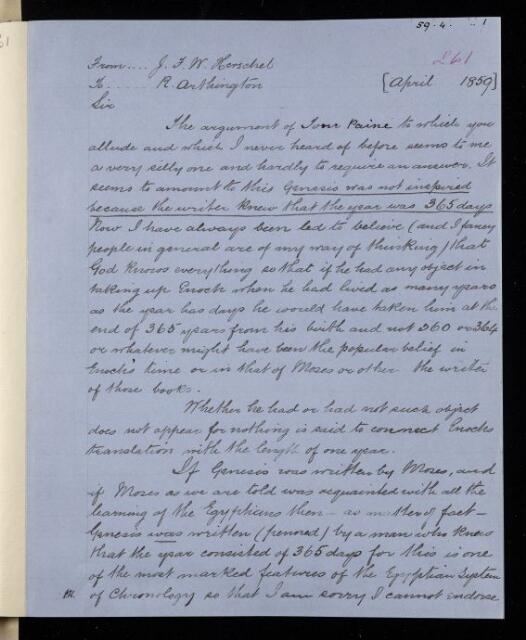 59.4. 1
261
From .... J. F. W. Herschel
To ...... R. Arthington
[April 1859]
Sir
The argument of Tom Paine to which you
allude and which I never heard of before seems to me
a very silly one and hardly to require an answer. It
seems to amount to this Genesis was not inspired
because the writer knew that the year was 365 days
Now I have always been led to believe (and I fancy
people in general are of my way of thinking) that
God knows everything so that if he had any object in
taking up Enoch when he had lived as many years
as the year has days he would have taken him at the
end of 365 years from his birth and not 360 or 364
or whatever might have been the popular belief in
Enoch's time or in that of Moses or other the writer
of those books.
Whether he had or had not such object
does not appear for nothing is said to connect Enochs
translation with the length of one year.
If Genesis was written by Moses, and
if Moses as we are told was acquainted with all the
learning of the Egyptians then - as matter of fact -
Genesis was written (penned) by a man who knew
that the year consisted of 365 days for this is one
of the most marked features of the Egyptian System
of Chronology so that I am sorry I cannot endorse